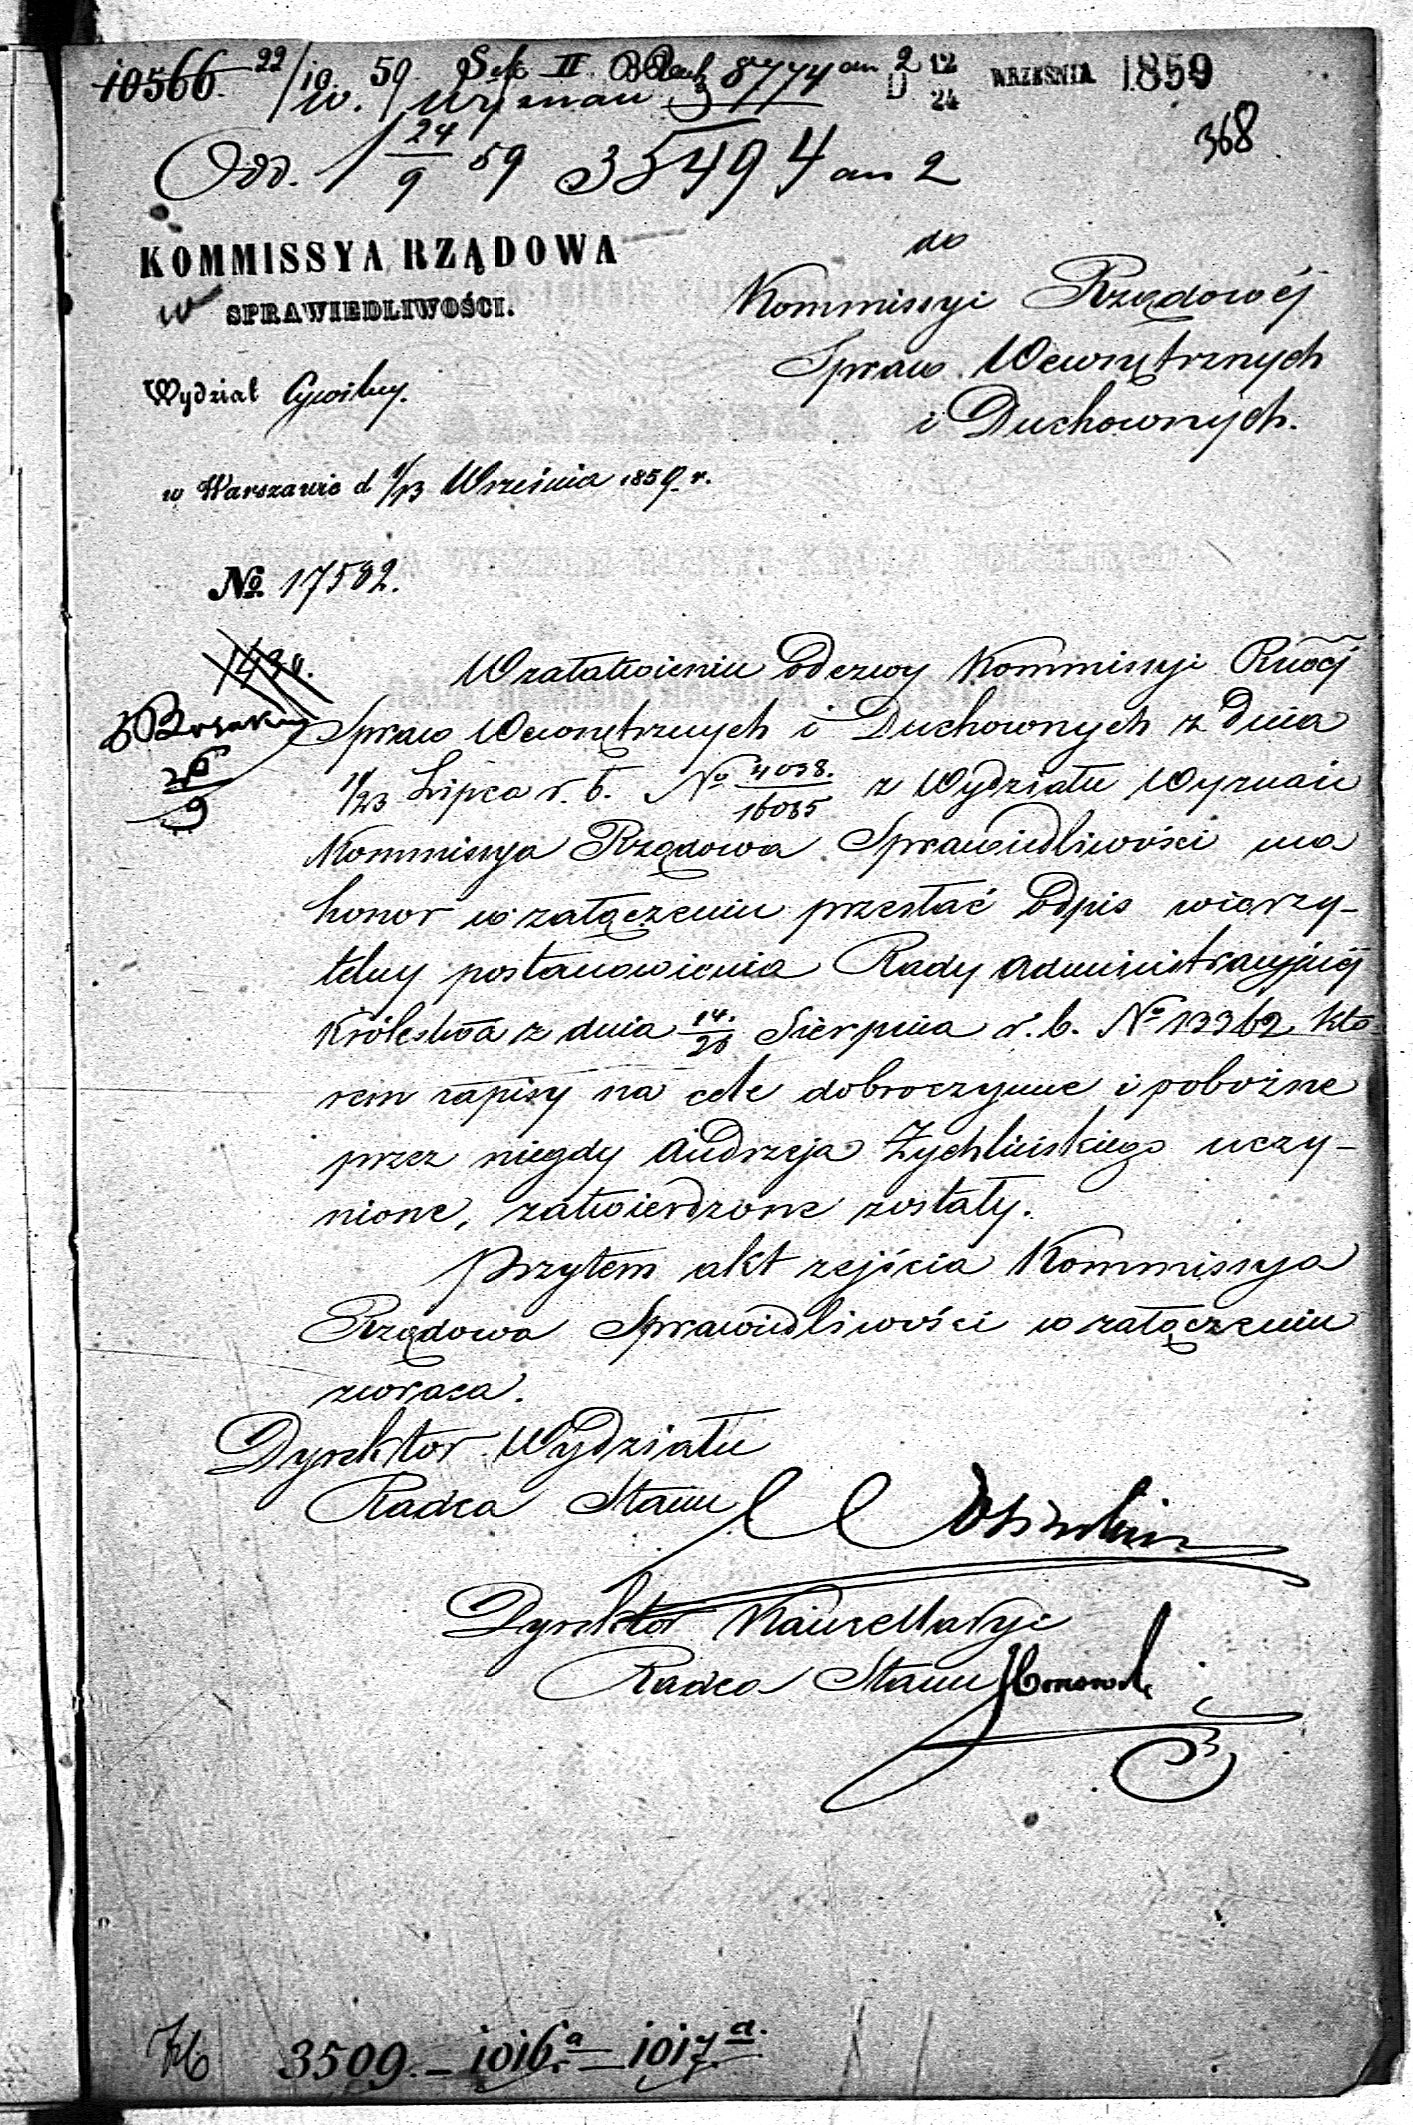 10566 22/10 59 Sek II 8774 an 2 D 12/24 WRZEŚNIA 1859
W. Wyznań
368
Odd. 1 24/9 59 35494 an 2
KOMMISSYA RZĄDOWA
SPRAWIEDLIWOŚCI.
do
Kommissyi Rządowéj
Spraw Wewnętrznych
i Duchownych.
Wydział Cywilny.
w Warszawie d 1/13 Września 1859 r.
No 17582.
W załatwieniu Odezwy Kommissyi Rządowéj
Spraw Wewnętrznych i Duchownych z dnia
11/23 Lipca r. b. No 4038./16085 z Wydziału Wyznań
Kommissya Rządowa Sprawiedliwości ma
honor w załączeniu przesłać Odpis wierzy-
telny postanowienia Rady Administracyjnéj
Królestwa z dnia 14./26 Sierpnia r. b. No 13362, któ-
rem zapisy na cele dobroczynne i pobożne
przez niegdy Andrzeja Żychlińskiego uczy-
nione, zatwierdzone zostały.
Przytem akt zejścia Kommissya
Rządowa Sprawiedliwości w załączeniu
zwraca.
Dyrektor Wydziału
Radca Stanu
Dyrektor Kancellaryi
Radca Stanu
26/9
3509. – 1016a – 1017a.